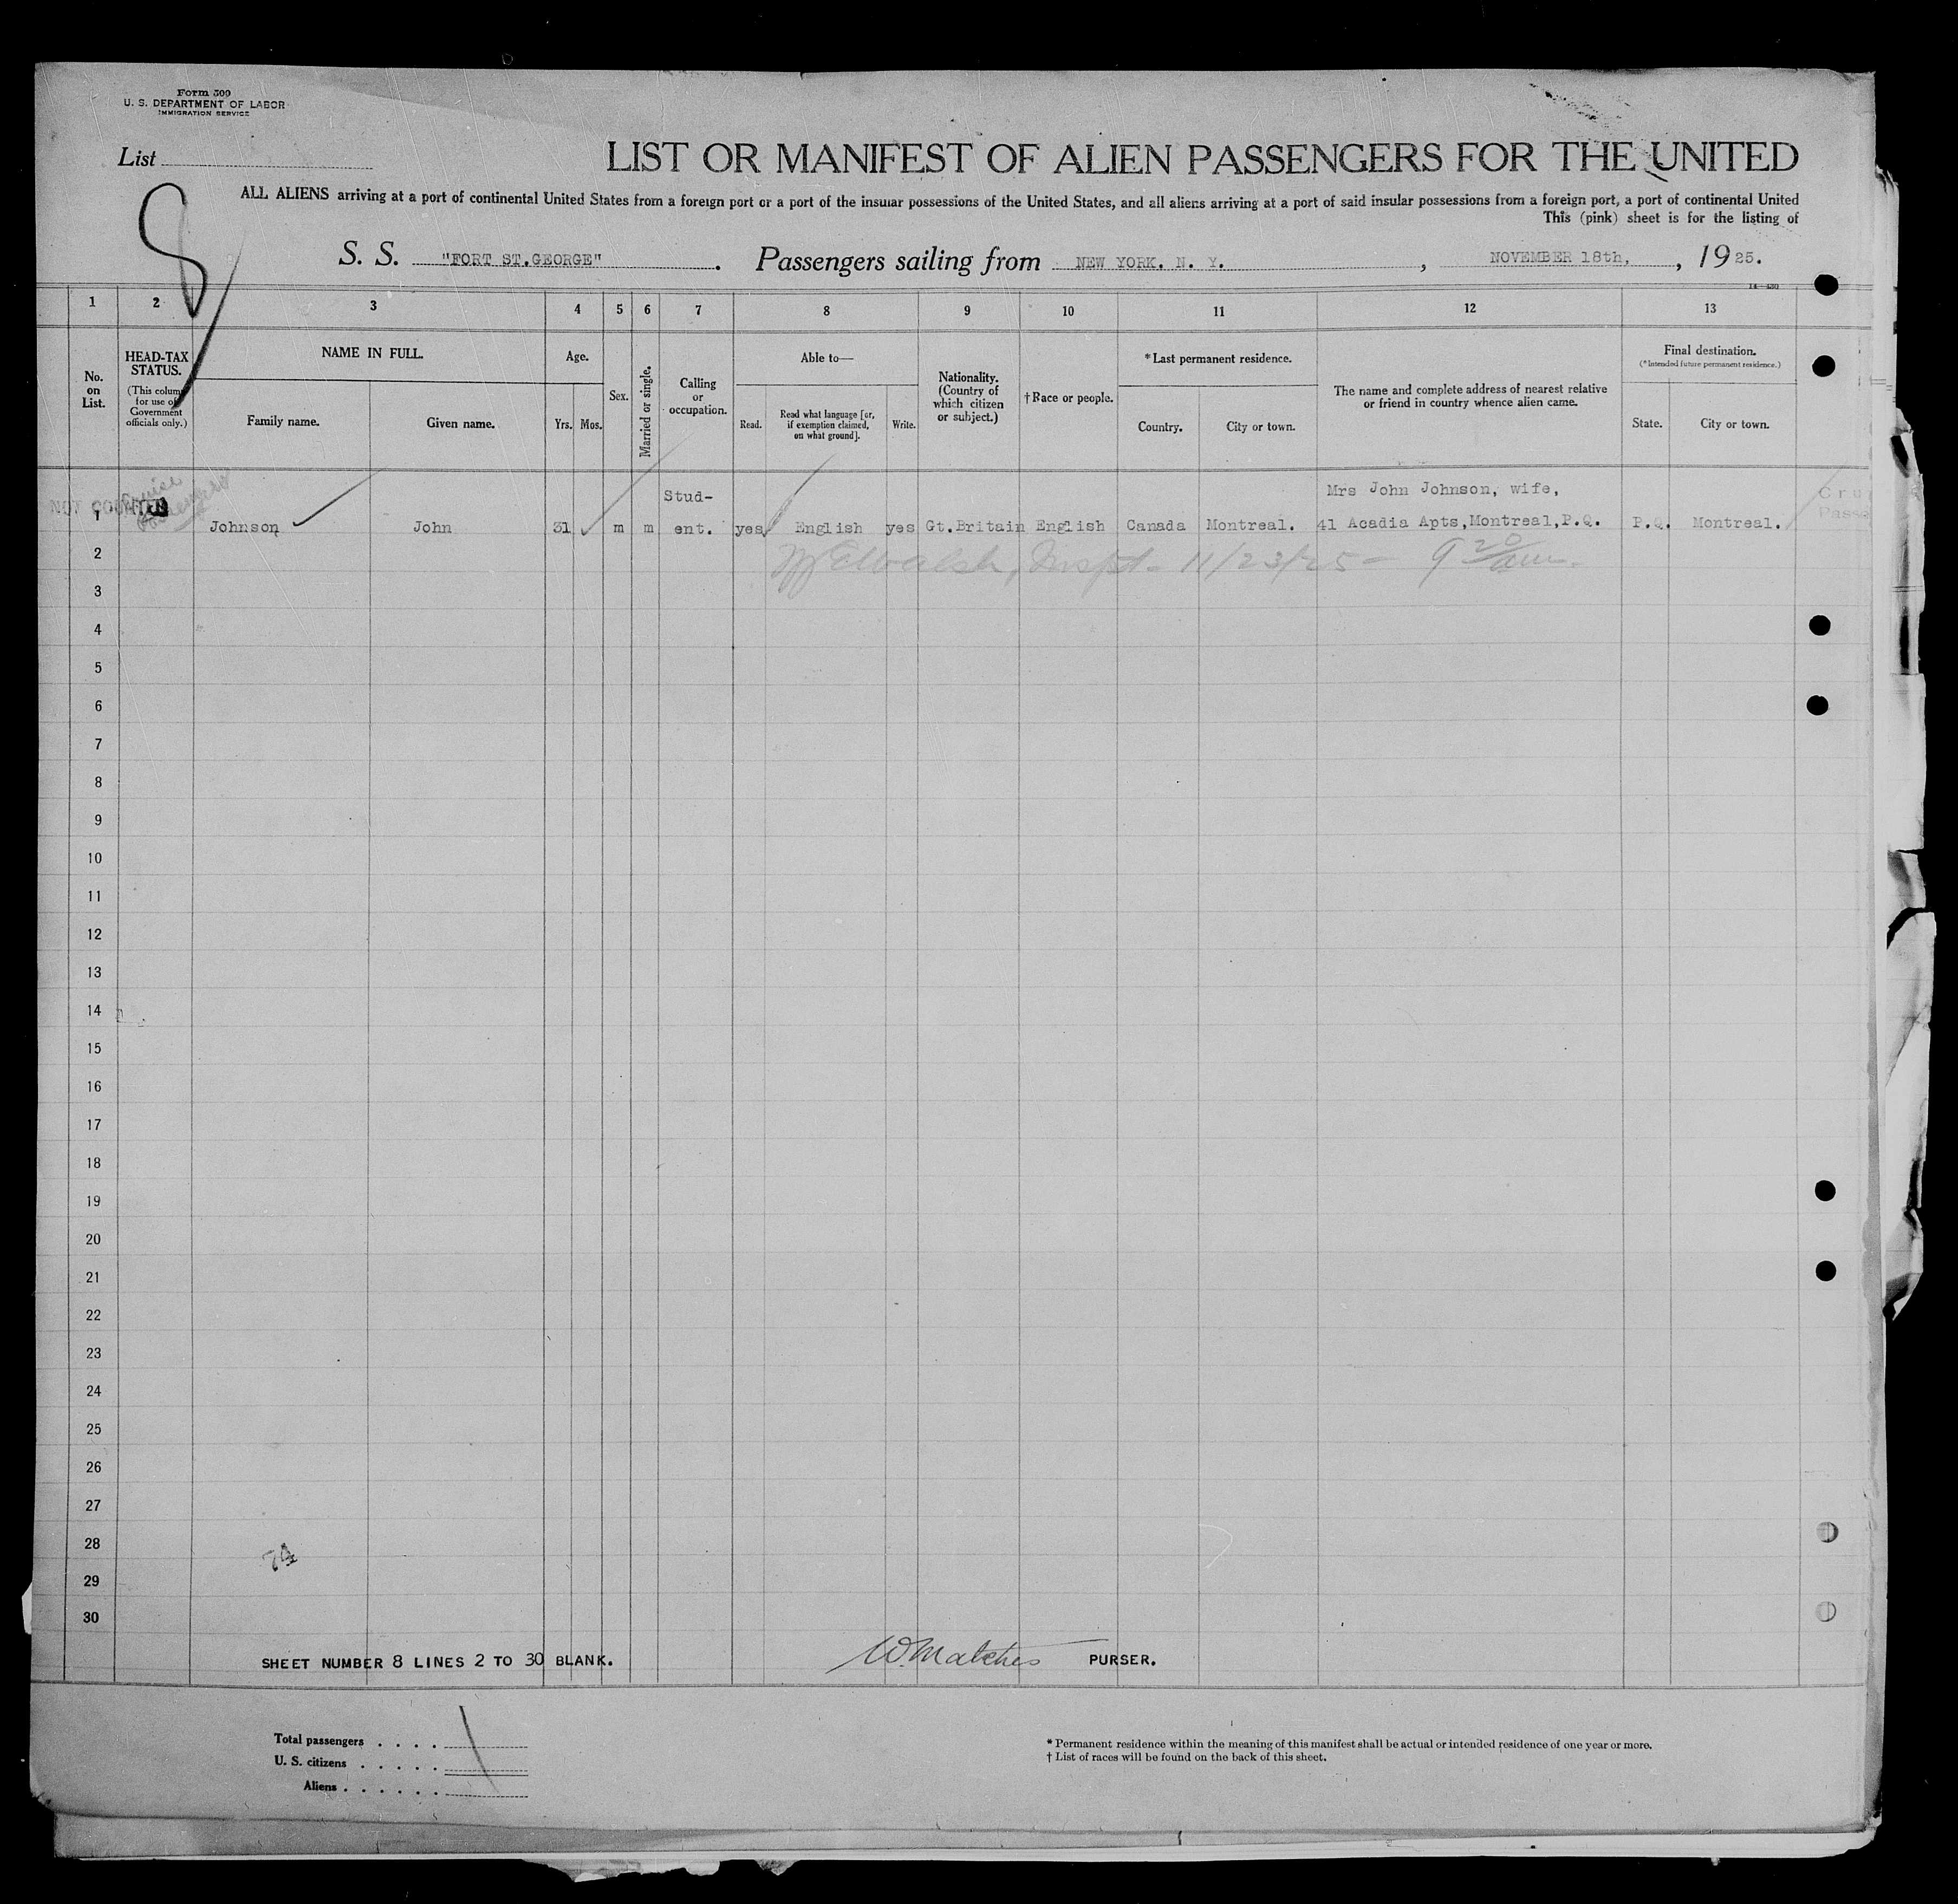 Form 500
U. S. DEPARTMENT OF LABOR
IMMIGRATION SERVICE
List
LIST OR MANIFEST OF ALIEN PASSENGERS FOR THE UNITED
ALL ALIENS arriving at a port of continental United States from a foreign port or a port of the insular possessions of the United States, and all aliens arriving at a port of said insular possessions from a foreign port, a port of continental United
This (pink) sheet is for the listing of
8
S. S. "FORT ST.GEORGE". Passengers sailing from NEW YORK. N. Y., NOVEMBER 18th,, 1925.
1 2 3 4 5 6 7 8 9 10 11 12 13
No. on List.
HEAD-TAX STATUS.
(This column for use of Government officials only.)
NAME IN FULL.
Family name.
Given name.
Age.
Yrs. Mos.
Sex.
Married or single.
Calling or occupation.
Able to—
Read.
Read what language [or, if exemption claimed, on what ground].
Write.
Nationality. (Country of which citizen or subject.)
†Race or people.
*Last permanent residence.
Country.
City or town.
The name and complete address of nearest relative or friend in country whence alien came.
Final destination.
(*Intended future permanent residence.)
State.
City or town.
Stud- Mrs John Johnson, wife,
1 Johnson John 31 m m ent. yes English yes Gt.Britain English Canada Montreal. 41 Acadia Apts,Montreal,P.Q. P.Q. Montreal.
2 Walsh, Inspt - 11/23/25 - 9 20 am.
3
4
5
6
7
8
9
10
11
12
13
14
15
16
17
18
19
20
21
22
23
24
25
26
27
28
29
30
SHEET NUMBER 8 LINES 2 TO 30 BLANK. W. Matches PURSER.
Total passengers
U. S. citizens
Aliens
* Permanent residence within the meaning of this manifest shall be actual or intended residence of one year or more.
† List of races will be found on the back of this sheet.